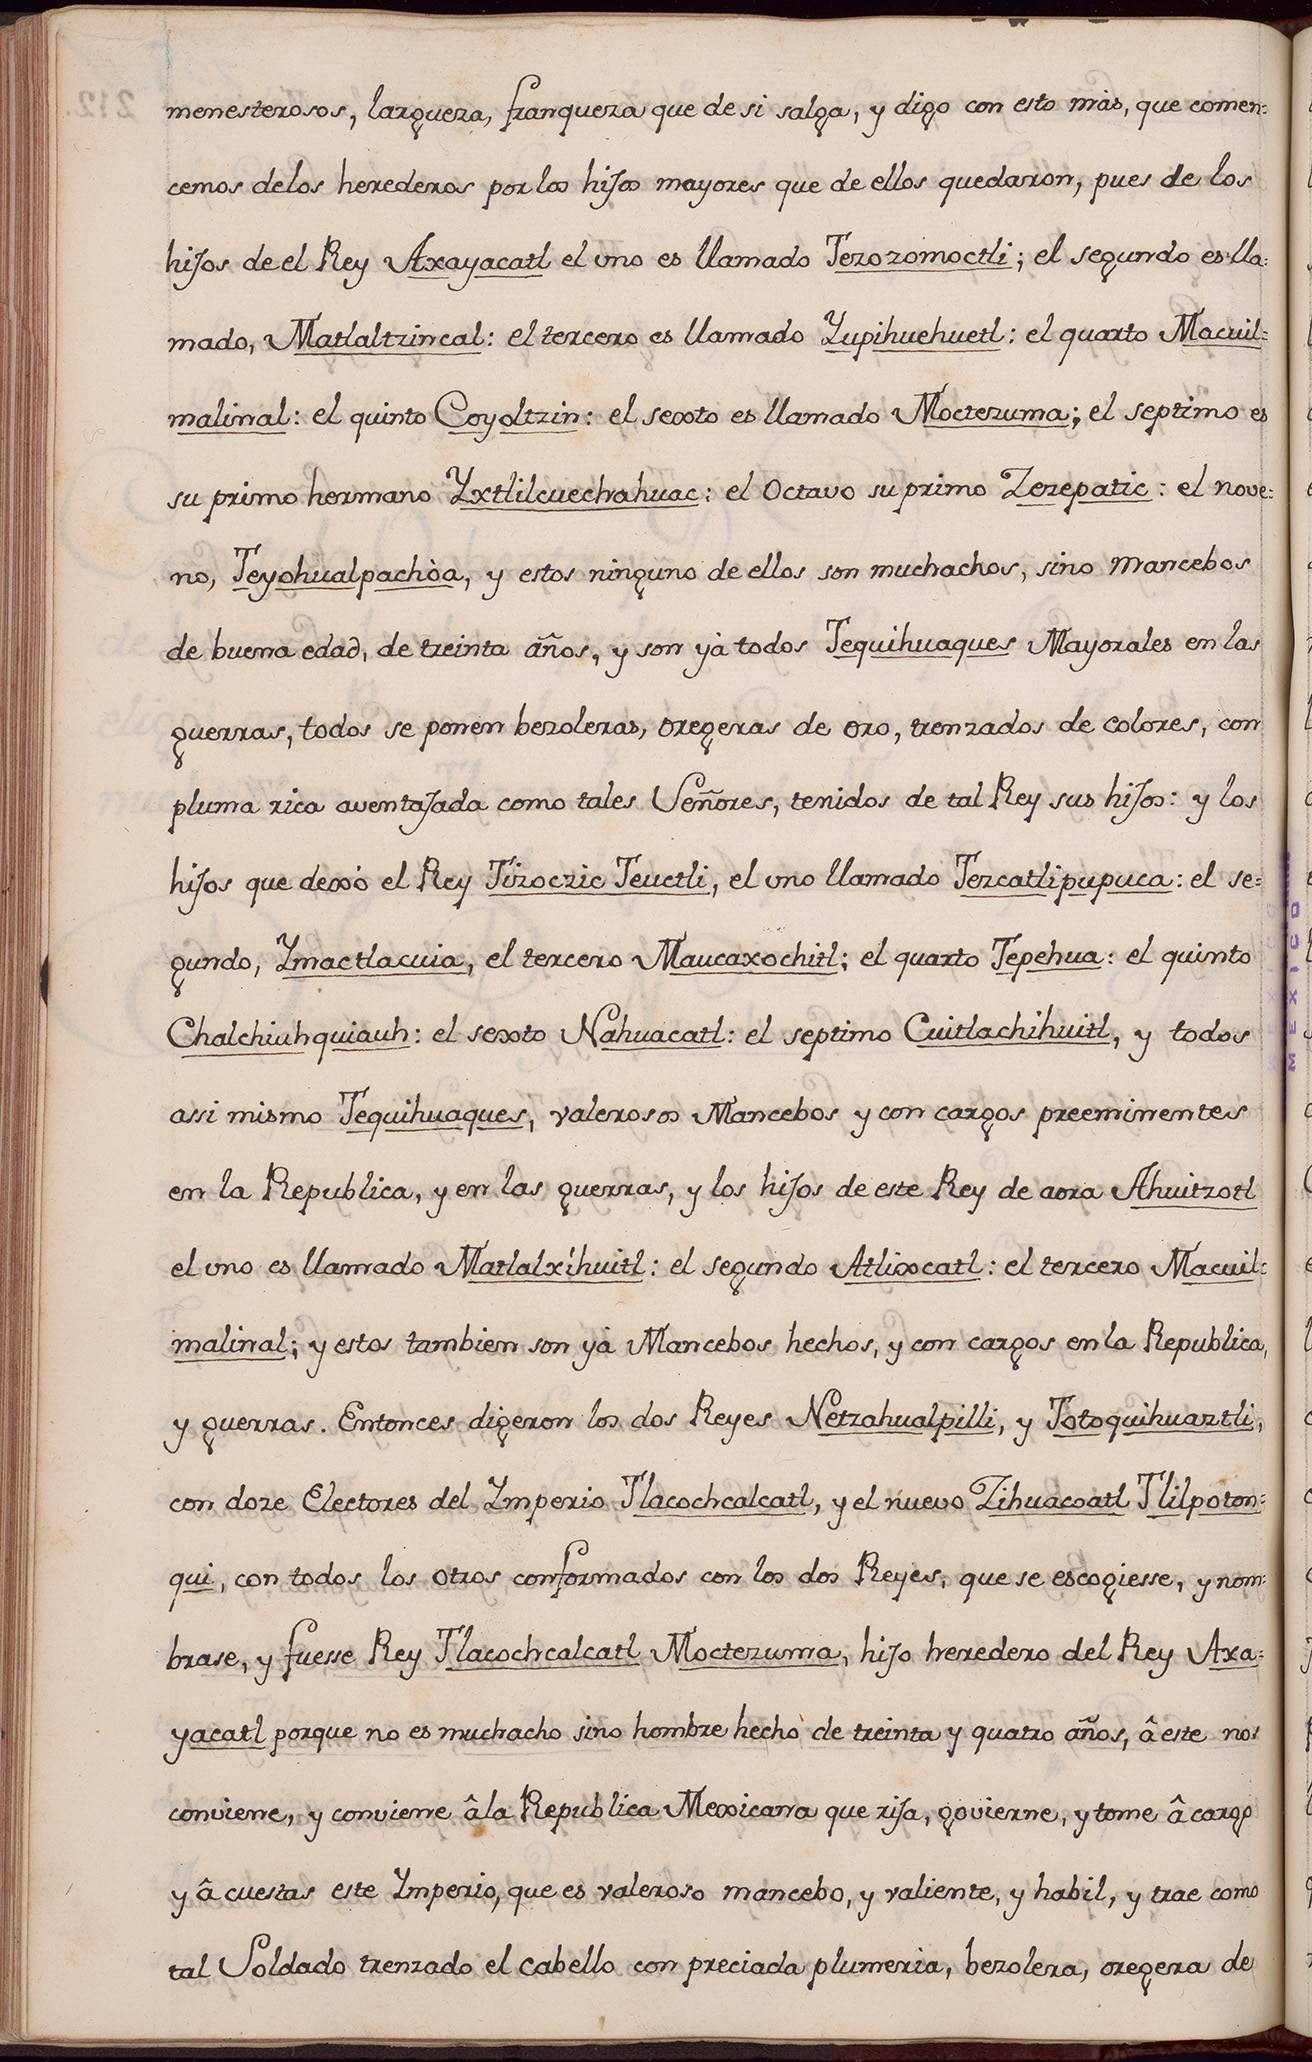 menesterosos, largueza, franqueza que de si salga, y digo con esto màs, que comen=
cemos delos herederos por los hijos mayores que de ellos quedaron, pues de los
hijos de el Rey Axayacatl el uno es llamado Tezozomoctli; el segundo es lla=
mado, Matlaltzincal: el tercero es llamado Yupihuehuetl: el quarto Macuil=
malinal: el quinto Coyoltzin: el sexto es llamado Moctezuma; el septimo es
su primo hermano Yxtlilcuechahuac: el Octavo su primo Zezepatic: el nove=
no, Teyohualpachòa, y estos ninguno de ellos son muchachos, sino Mancebos
de buena edad, de treinta años, y son yà todos Tequihuaques Mayorales en las
guerras, todos se ponen bezoleras, oregeras de oro, trenzados de colores, con
pluma rica aventajada como tales Señores, tenidos de tal Rey sus hijos: y los
hijos que dexò el Rey Tizoczic Teuctli, el uno llamado Tezcatlipupuca: el se=
gundo, Ymactlacuia, el tercero Maucaxochitl; el quarto Tepehua: el quinto
Chalchiuhquiauh: el sexto Nahuacatl: el septimo Cuitlachihuitl, y todos
assi mismo Tequihuaques, valerosos Mancebos y con cargos preeminentes
en la Republica, y en las guerras, y los hijos de este Rey de aora Ahuitzotl
el uno es llamado Matlalxihuitl: el segundo Atlixcatl: el tercero Macuil=
malinal; y estos tambien son yà Mancebos hechos, y con cargos en la Republica,
y guerras. Entonces digeron los dos Reyes Netzahualpilli, y Totoquihuaztli,
con doze Electores del Ymperio Tlacochcalcatl, y el nuevo Zihuacoatl Tlilpoton=
qui, con todos los otros conformados con los dos Reyes, que se escogiesse, y nom=
brase, y fuesse Rey Tlacochcalcatl Moctezuma, hijo heredero del Rey Axa=
yacatl porque no es muchacho sino hombre hecho de treinta y quatro años, â este nos
conviene, y conviene â la Republica Mexicana que rija, govierne, y tome â cargo
y â cuestas este Ymperio, que es valeroso mancebo, y valiente, y habil, y trae como
tal Soldado trenzado el cabello con preciada plumeria, bezolera, oregera de
MEXICO